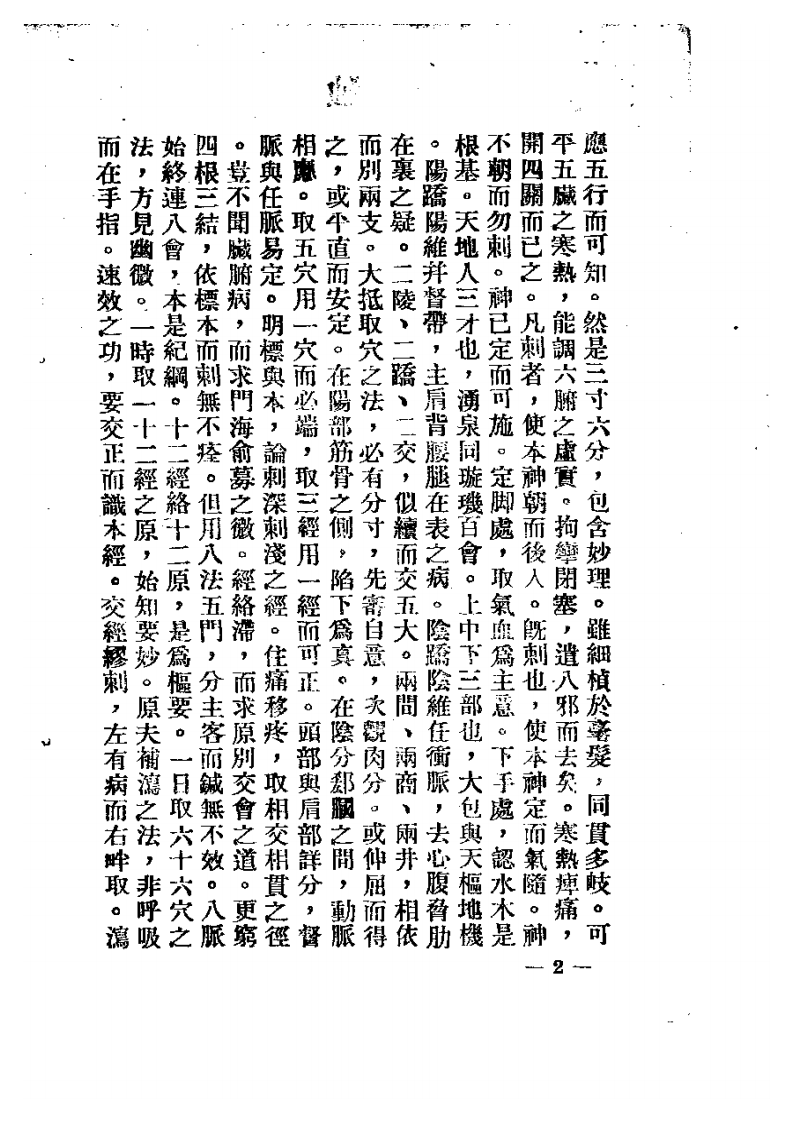 應五行而可知。然是三寸六分，包含妙理。雖細楨於毫髮，同貫多岐。可
平五臟之寒熱，能調六腑之虛實。拘攣閉塞，遣八邪而去矣。寒熱痺痛，
開四關而已之。凡刺者，使本神朝而後入。旣刺也，使本神定而氣隨。神
不朝而勿刺。神已定而可施。定脚處，取氣血爲主意。下手處，認水木是
根基。天地人三才也，湧泉同璇璣百會。上中下三部也，大包與天樞地機
。陽蹻陽維幷督帶，主肩背腰腿在表之病。陰蹻陰維任衝脈，去心腹脅肋
在裏之疑。二陵、二蹻、二交，似續而交五大。兩間、兩商、兩井，相依
而別兩支。大抵取穴之法，必有分寸，先審自意，次觀肉分。或伸屈而得
之，或平直而安定。在陽部筋骨之側，陷下爲真。在陰分郄膕之間，動脈
相應。取五穴用一穴而必端，取三經用一經而可正。頭部與肩部詳分，督
脈與任脈易定。明標與本，論刺深刺淺之經。住痛移疼，取相交相貫之徑
。豈不聞臟腑病，而求門海俞募之微。經絡滯，而求原別交會之道。更窮
四根三結，依標本而刺無不痊。但用八法五門，分主客而鍼無不效。八脈
始終連八會，本是紀綱。十二經絡十二原，是爲樞要。一日取六十六穴之
法，方見幽微。一時取一十二經之原，始知要妙。原夫補瀉之法，非呼吸
而在手指。速效之功，要交正而識本經。交經繆刺，左有病而右畔取。瀉
— 2 —